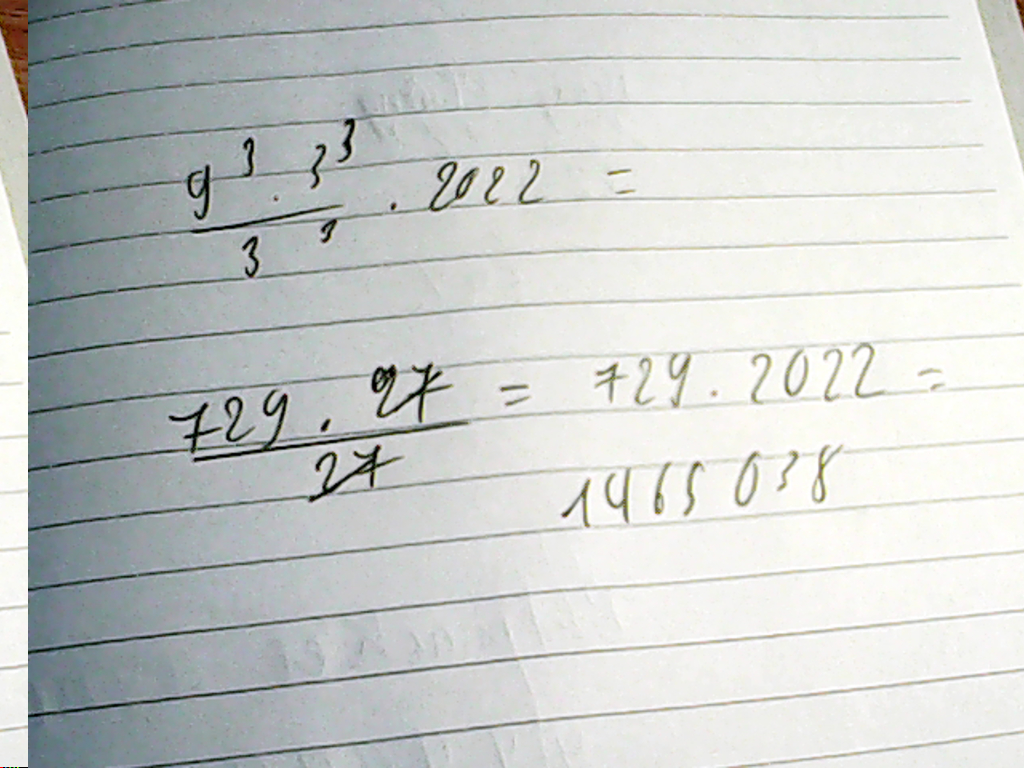 9³ · 3³
3³
· 2022 =
729 · 27
27
= 729 . 2022 =
1465 038